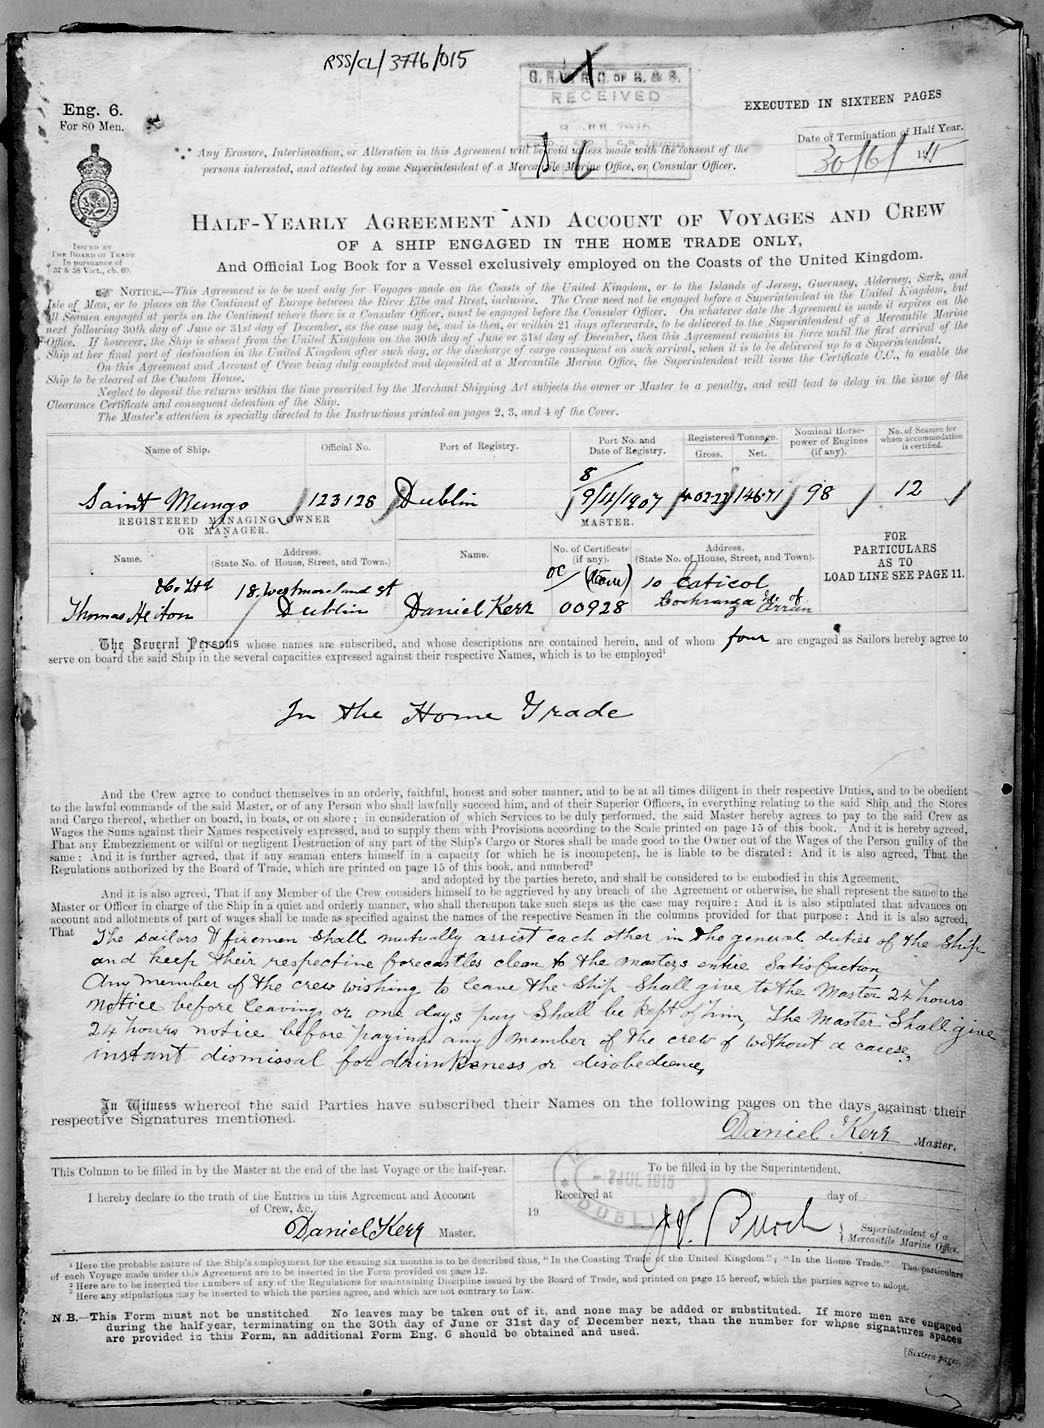 RSS/CL/3776/015
Eng. 6.
For 80 Men.
RECEIVED
EXECUTED IN SIXTEEN PAGES
Date of Termination of Half Year.
30/6/1915
Any Erasure, Interlineation, or Alteration in this Agreement will be void unless made with the consent of the
persons interested, and attested by some Superintendent of a Mercantile Marine Office, or Consular Officer.
ISSUED BY
THE BOARD OF TRADE
In pursuance of
57 & 58 Vict., ch. 60.
HALF-YEARLY AGREEMENT AND ACCOUNT OF VOYAGES AND CREW
OF A SHIP ENGAGED IN THE HOME TRADE ONLY,
And Official Log Book for a Vessel exclusively employed on the Coasts of the United Kingdom.
NOTICE.—This Agreement is to be used only for Voyages made on the Coasts of the United Kingdom, or to the Islands of Jersey, Guernsey, Alderney, Sark, and
Isle of Man, or to places on the Continent of Europe between the River Elbe and Brest, inclusive. The Crew need not be engaged before a Superintendent in the United Kingdom, but
all Seamen engaged at ports on the Continent where there is a Consular Officer, must be engaged before the Consular Officer. On whatever date the Agreement is made it expires on the
next following 30th day of June or 31st day of December, as the case may be, and is then, or within 21 days afterwards, to be delivered to the Superintendent of a Mercantile Marine
Office. If however, the Ship is absent from the United Kingdom on the 30th day of June or 31st day of December, then this Agreement remains in force until the first arrival of the
Ship at her final port of destination in the United Kingdom after such day, or the discharge of cargo consequent on such arrival, when it is to be delivered up to a Superintendent.
On this Agreement and Account of Crew being duly completed and deposited at a Mercantile Marine Office, the Superintendent will issue the Certificate C.C., to enable the
Ship to be cleared at the Custom House.
Neglect to deposit the returns within the time prescribed by the Merchant Shipping Act subjects the owner or Master to a penalty, and will lead to delay in the issue of the
Clearance Certificate and consequent detention of the Ship.
The Master's attention is specially directed to the Instructions printed on pages 2, 3, and 4 of the Cover.
Name of Ship. Official No. Port of Registry. Port No. and Date of Registry. Registered Tonnage. Gross. Net. Nominal Horse-power of Engines (if any). No. of Seamen for whom accommodation is certified.
Saint Mungo 123128 Dublin 8 9/4/1907 402.22 146.71 98 12
REGISTERED MANAGING OWNER OR MANAGER.
MASTER.
Name. Address. (State No. of House, Street, and Town). Name. No. of Certificate (if any). Address. (State No. of House, Street, and Town).
FOR PARTICULARS AS TO LOAD LINE SEE PAGE 11.
Thomas Heiton & Co. Ltd 18. Westmoreland St Dublin Daniel Kerr 00928 10 Arran
The Several Persons whose names are subscribed, and whose descriptions are contained herein, and of whom four are engaged as Sailors hereby agree to
serve on board the said Ship in the several capacities expressed against their respective Names, which is to be employed¹
In the Home Trade
And the Crew agree to conduct themselves in an orderly, faithful, honest and sober manner, and to be at all times diligent in their respective Duties, and to be obedient
to the lawful commands of the said Master, or of any Person who shall lawfully succeed him, and of their Superior Officers, in everything relating to the said Ship and the Stores
and Cargo thereof, whether on board, in boats, or on shore; in consideration of which Services to be duly performed, the said Master hereby agrees to pay to the said Crew as
Wages the Sums against their Names respectively expressed, and to supply them with Provisions according to the Scale printed on page 15 of this book. And it is hereby agreed,
That any Embezzlement or wilful or negligent Destruction of any part of the Ship's Cargo or Stores shall be made good to the Owner out of the Wages of the Person guilty of the
same: And it is further agreed, that if any seaman enters himself in a capacity for which he is incompetent, he is liable to be disrated: And it is also agreed, That the
Regulations authorized by the Board of Trade, which are printed on page 15 of this book, and numbered²
and adopted by the parties hereto, and shall be considered to be embodied in this Agreement.
And it is also agreed, That if any Member of the Crew considers himself to be aggrieved by any breach of the Agreement or otherwise, he shall represent the same to the
Master or Officer in charge of the Ship in a quiet and orderly manner, who shall thereupon take such steps as the case may require: And it is also stipulated that advances on
account and allotments of part of wages shall be made as specified against the names of the respective Seamen in the columns provided for that purpose: And it is also agreed,
That The sailors & firemen shall mutually assist each other in the general duties of the ship
and keep their respective forecastles clean to the masters entire satisfaction
Any member of the crew wishing to leave the ship shall give to the Master 24 hours
notice before leaving or one days pay shall be kept of him, The Master shall give
24 hours notice before paying any member of the crew of without a cause,
instant dismissal for drunkeness or disobedience,
In Witness whereof the said Parties have subscribed their Names on the following pages on the days against their
respective Signatures mentioned.
Daniel Kerr Master.
This Column to be filled in by the Master at the end of the last Voyage or the half-year.
I hereby declare to the truth of the Entries in this Agreement and Account
of Crew, &c.
Daniel Kerr Master.
To be filled in by the Superintendent.
Received at the day of
19
7 JUL 1915
DUBLIN
Superintendent of a
Mercantile Marine Office.
¹ Here the probable nature of the Ship's employment for the ensuing six months is to be described thus, "In the Coasting Trade of the United Kingdom"; "In the Home Trade." The particulars
of each Voyage made under this Agreement are to be inserted in the Form provided on page 12.
² Here are to be inserted the numbers of any of the Regulations for maintaining Discipline issued by the Board of Trade, and printed on page 15 hereof, which the parties agree to adopt.
³ Here any stipulations may be inserted to which the parties agree, and which are not contrary to Law.
N.B.—This Form must not be unstitched No leaves may be taken out of it, and none may be added or substituted. If more men are engaged
during the half-year, terminating on the 30th day of June or 31st day of December next, than the number for whose signatures spaces
are provided in this Form, an additional Form Eng. 6 should be obtained and used.
[Sixteen pages.